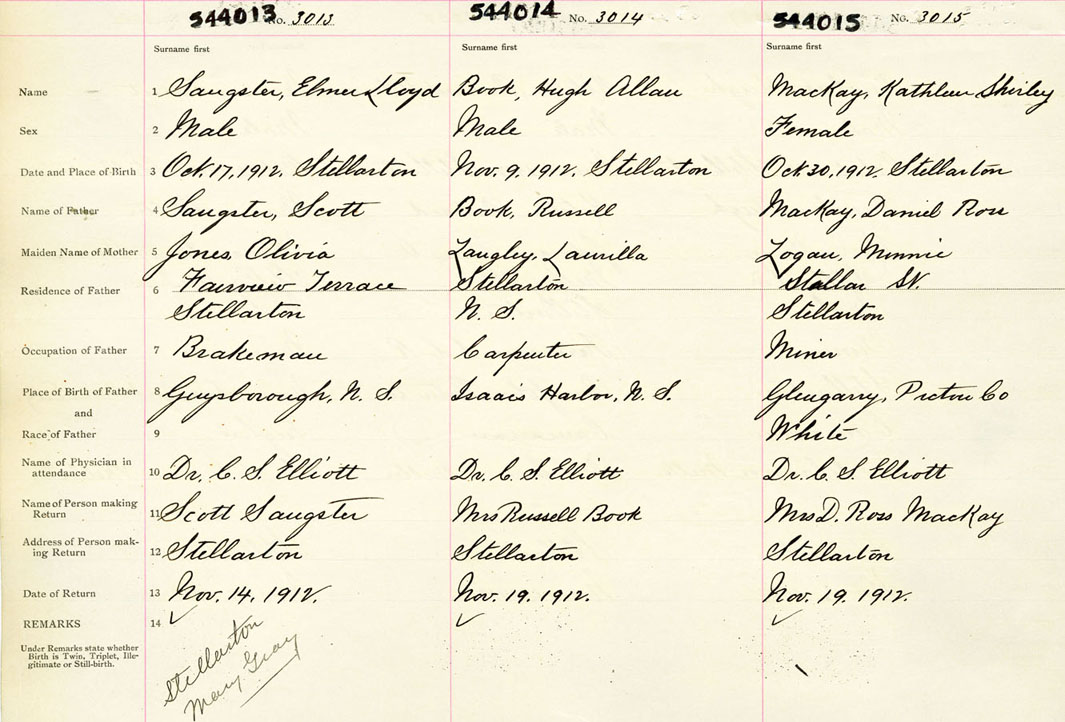 544013 No. 3013 544014 No. 3014 544015 No. 3015
Surname first Surname first Surname first
Name 1 Sangster, Elmer Lloyd Book, Hugh Allan MacKay, Kathleen Shirley
Sex 2 Male Male Female
Date and Place of Birth 3 Oct. 17, 1912, Stellarton Nov. 9, 1912, Stellarton Oct 30, 1912, Stellarton
Name of Father 4 Sangster, Scott Book, Russell MacKay, Daniel Ross
Maiden Name of Mother 5 Jones, Olivia Langley, Laurilla Logan, Minnie
Residence of Father 6 Fairview Terrace Stellarton Stellar St.
Stellarton N. S. Stellarton
Occupation of Father 7 Brakeman Carpenter Miner
Place of Birth of Father 8 Guysborough, N. S. Isaacs Harbor, N. S. Glengarry, Pictou Co
and
Race of Father 9 White
Name of Physician in
attendance 10 Dr. C. S. Elliott Dr. C. S. Elliott Dr. C. S. Elliott
Name of Person making
Return 11 Scott Sangster Mrs Russell Book Mrs D. Ross MacKay
Address of Person mak-
ing Return 12 Stellarton Stellarton Stellarton
Date of Return 13 Nov. 14, 1912. Nov. 19, 1912. Nov. 19, 1912.
REMARKS 14
Under Remarks state whether
Birth is Twin, Triplet, Ille-
gitimate or Still-birth.
Stellarton
Mary Gray